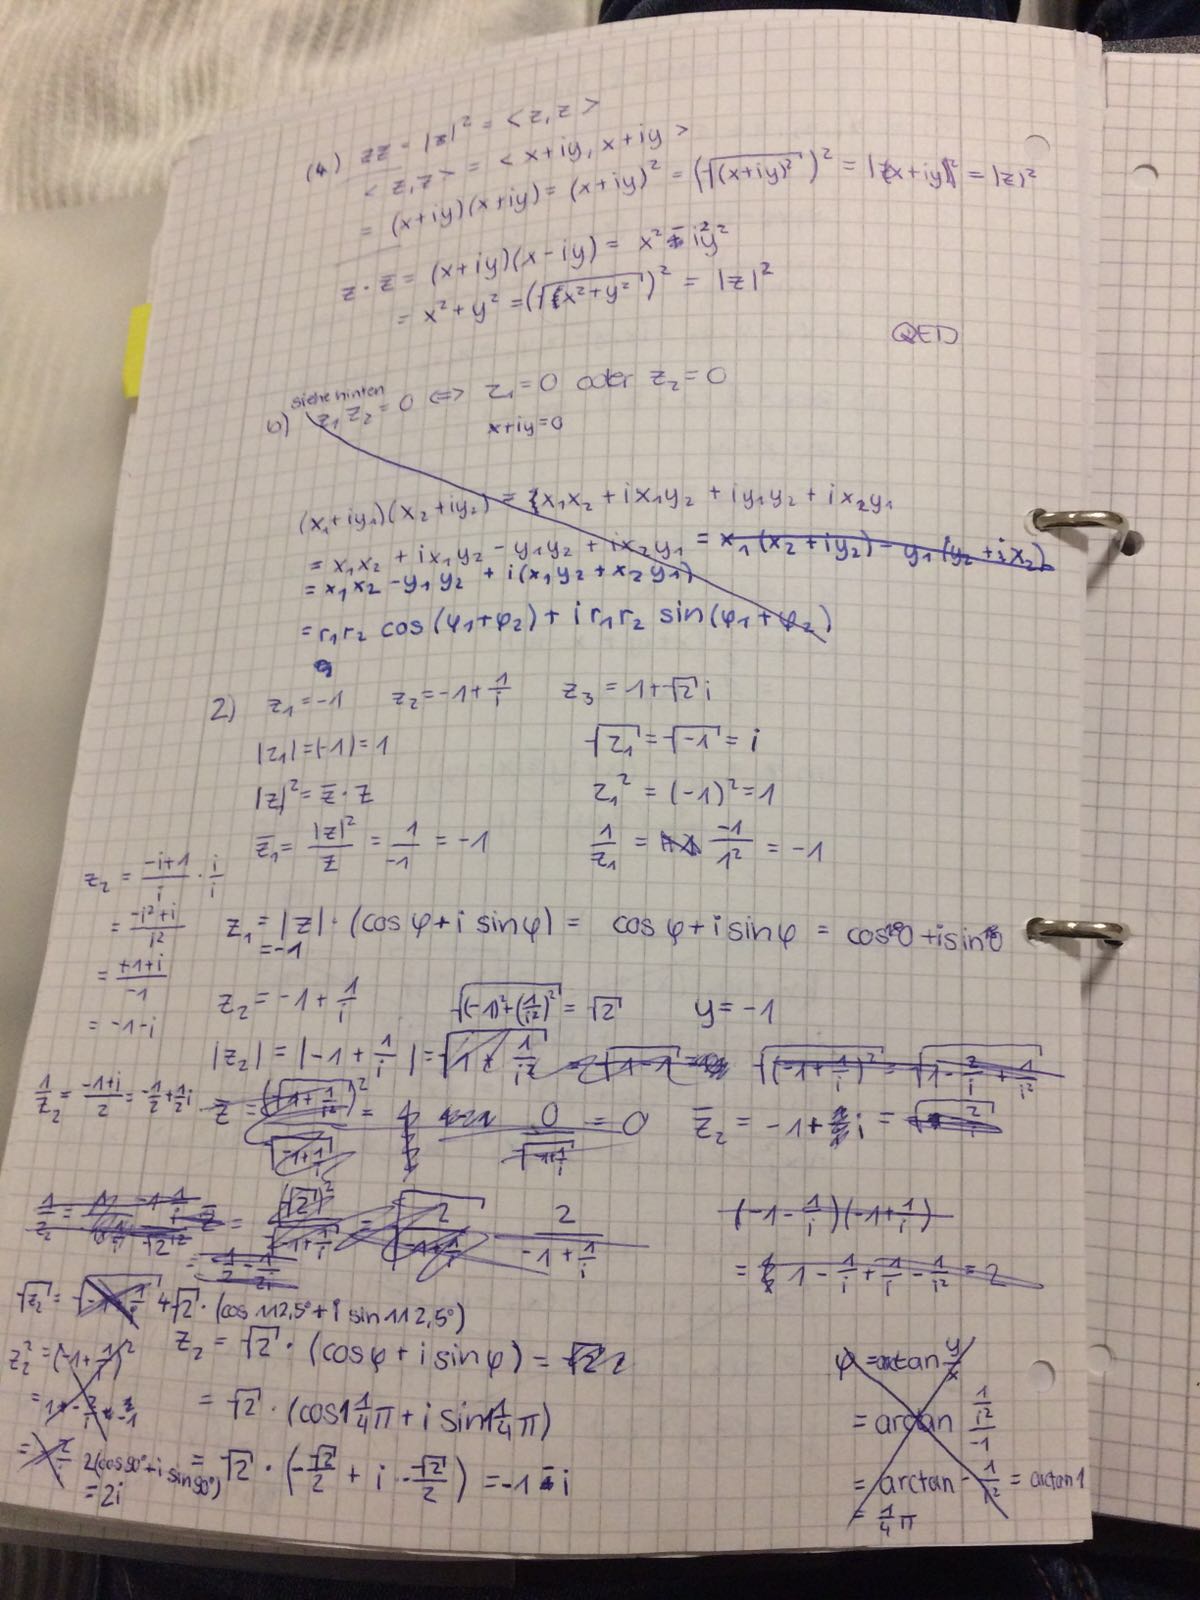 (4) z z̄ = |z|² = < z, z >
< z, z > = < x+iy, x+iy >
= (x+iy)(x+iy) = (x+iy)² = (√(x+iy)²)² = |x+iy|² = |z|²
z · z̄ = (x+iy)(x-iy) = x² - i²y²
= x² + y² = (√(x²+y²))² = |z|²
QED
siehe hinten
6) z₁ z₂ = 0 ⇔ z₁ = 0 oder z₂ = 0
x+iy=0
(x₁+iy₁)(x₂+iy₂) = x₁x₂ + ix₁y₂ + iy₁y₂ + ix₂y₁
= x₁x₂ + ix₁y₂ - y₁y₂ + ix₂y₁ = x₁(x₂+iy₂) - y₁(y₂+ix₂)
= x₁x₂ - y₁y₂ + i(x₁y₂ + x₂y₁)
= r₁r₂ cos(φ₁+φ₂) + i r₁r₂ sin(φ₁+φ₂)
2) z₁ = -1 z₂ = -1 + 1/i z₃ = 1 + √2 i
|z₁| = (-1) = 1 √z₁ = √-1 = i
|z|² = z̄ · z z₁² = (-1)² = 1
z̄₁ = |z|²/z = 1/-1 = -1 1/z₁ = -1/1² = -1
z₂ = (-i+1)/i · i/i
= (-i²+i)/i²
= (+1+i)/-1
= -1-i
z₁ = |z| · (cos φ + i sin φ) = cos φ + i sin φ =
= -1
z₂ = -1 + 1/i √((-1)² + (1/i²)²) = √2 y = -1
|z₂| = |-1 + 1/i| = √(1 + 1/i²) = √(1-1) √((-1+1/i)²) = √(1 - 2/i + 1/i²)
1/z₂ = (-1+i)/2 = -1/2 + 1/2 i
0 = 0 z̄₂ = -1 + i =
2/(-1+1/i) (-1-1/i)(-1+1/i)
= 1 - 1/i + 1/i - 1/i² = 2
√z₂ = 4√2 · (cos 112,5° + i sin 112,5°)
z₂² = (-1+1/i)²
z₂ = √2 · (cos φ + i sin φ) =
φ = arctan y/x
= √2 · (cos 1 1/4 π + i sin 1 1/4 π)
= arctan (1/i²)/-1
2(cos 90° + i sin 90°)
= 2i
= √2 · (-√2/2 + i · -√2/2) = -1 - i
= arctan - 1/i² = arctan 1
= 1/4 π